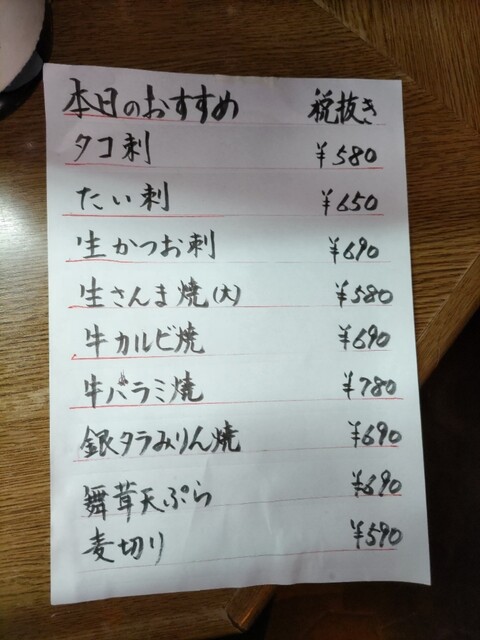 本日のおすすめ 税抜き
タコ刺 ¥580
たい刺 ¥650
生かつお刺 ¥690
生さんま焼(大) ¥580
牛カルビ焼 ¥690
牛バラミ焼 ¥780
銀タラみりん焼 ¥690
舞茸天ぷら ¥690
麦切り ¥590